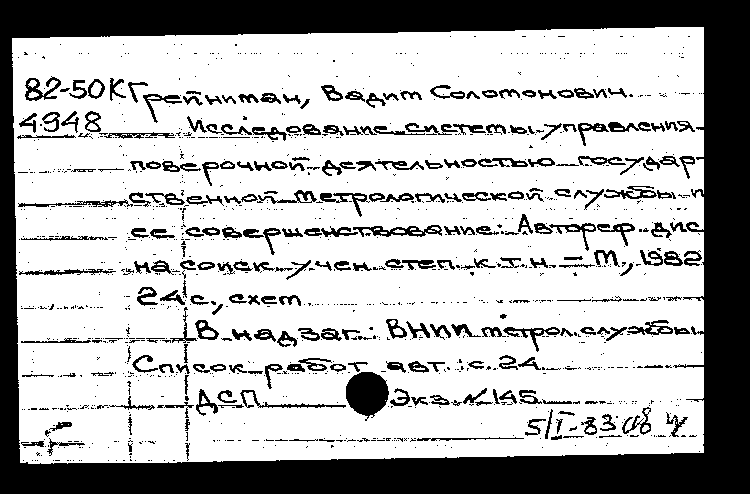 82-50К Грейниман, Вадим Соломонович.
4948 Исследование системы управления
поверочной деятельностью государ-
ственной метрологической службы и
ее совершенствование: Автореф. дис
на соиск. учен. степ. к.т.н. – М., 1982
24 с., схем
В надзаг.: ВНИИ метрол. службы.
Список работ авт.: с. 24
ДСП. Экз. № 145
5/I-83